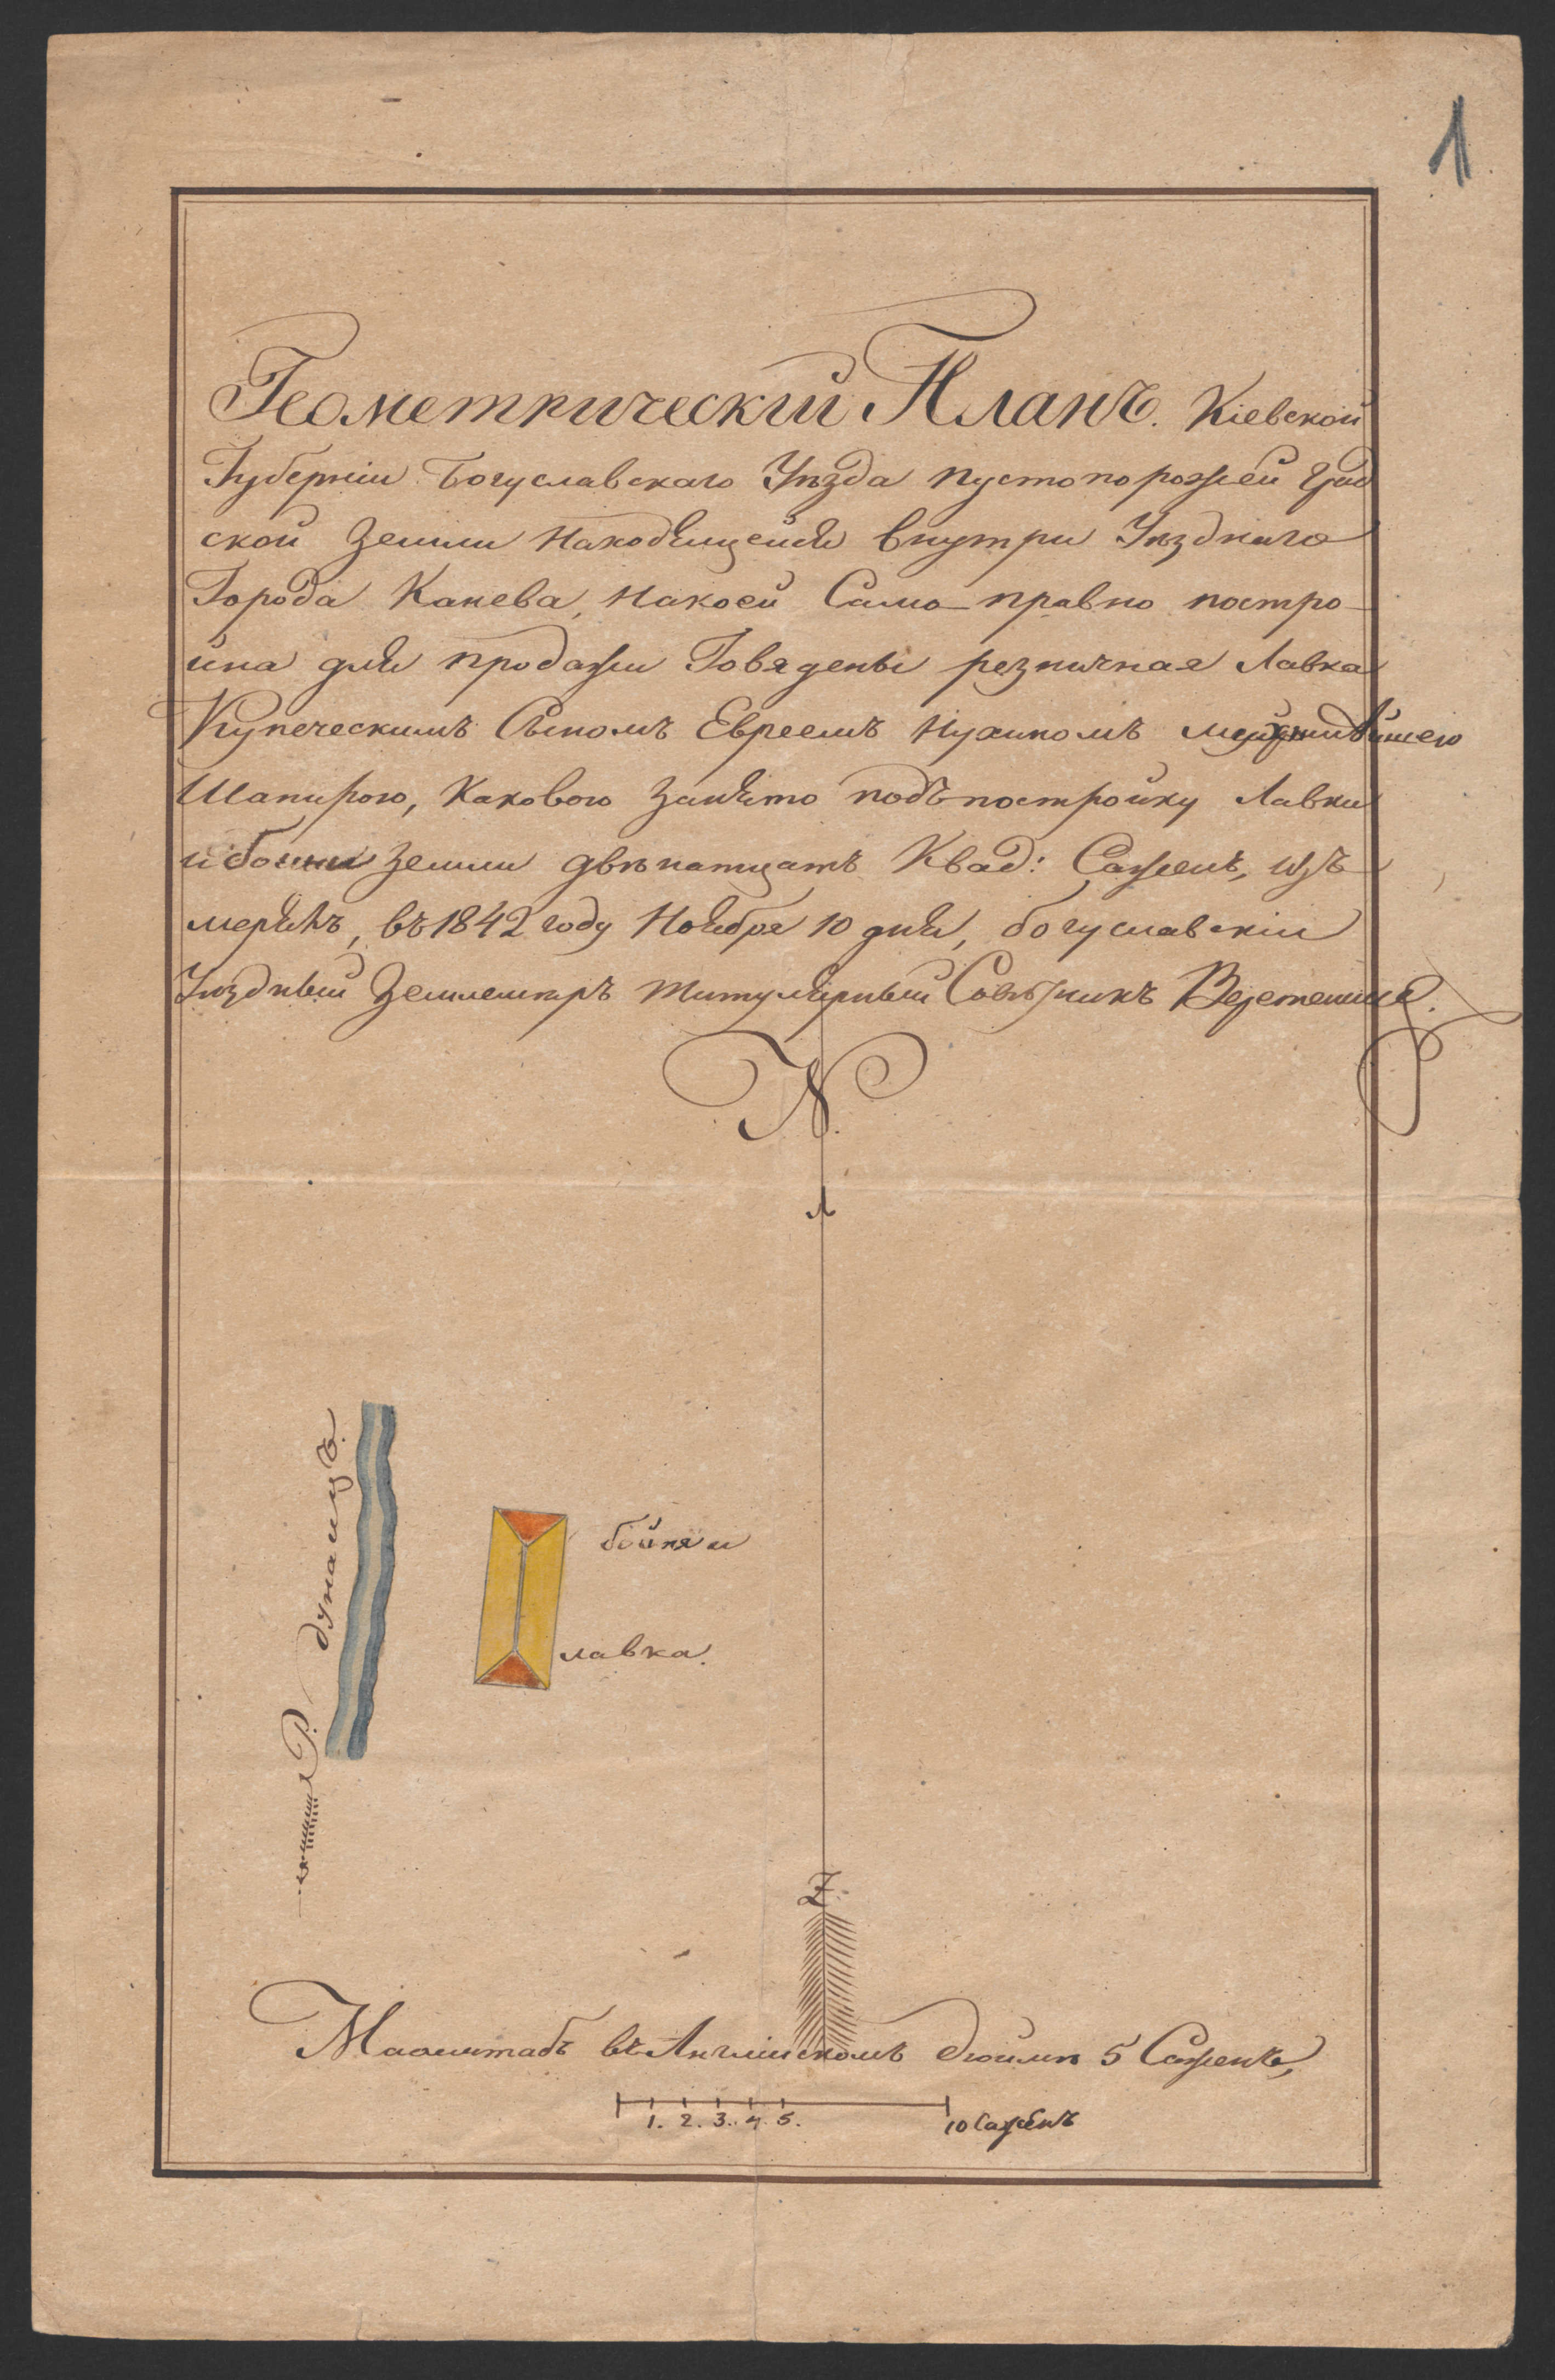 1
Геометрический Планъ. Кіевской
Губерніи Богуславскаго Уѣзда пустопорожей Град
ской Земли Находящейся внутри Уѣзднаго
Города Канева, Накоей Само-правно постро-
ина для продажи Говядены резничная Лавка
Купеческимъ Сыномъ Евреемъ Нухимомъ
Шапирою, Каковою Занято подъ постройку Лавки
и бойни Земли двѣнатцать Квад: Сажень, изъ
мерялъ, въ 1842 году Ноября 10 дня, богуславскій
Уѣздный Землемѣръ Титулярный Совѣтникъ
N.
Р. дунаицъ.
бойня и
лавка.
Z.
Масштабъ въ Англинскомъ дюймѣ 5 Сажень,
1. 2. 3. 4. 5. 10 Сажень